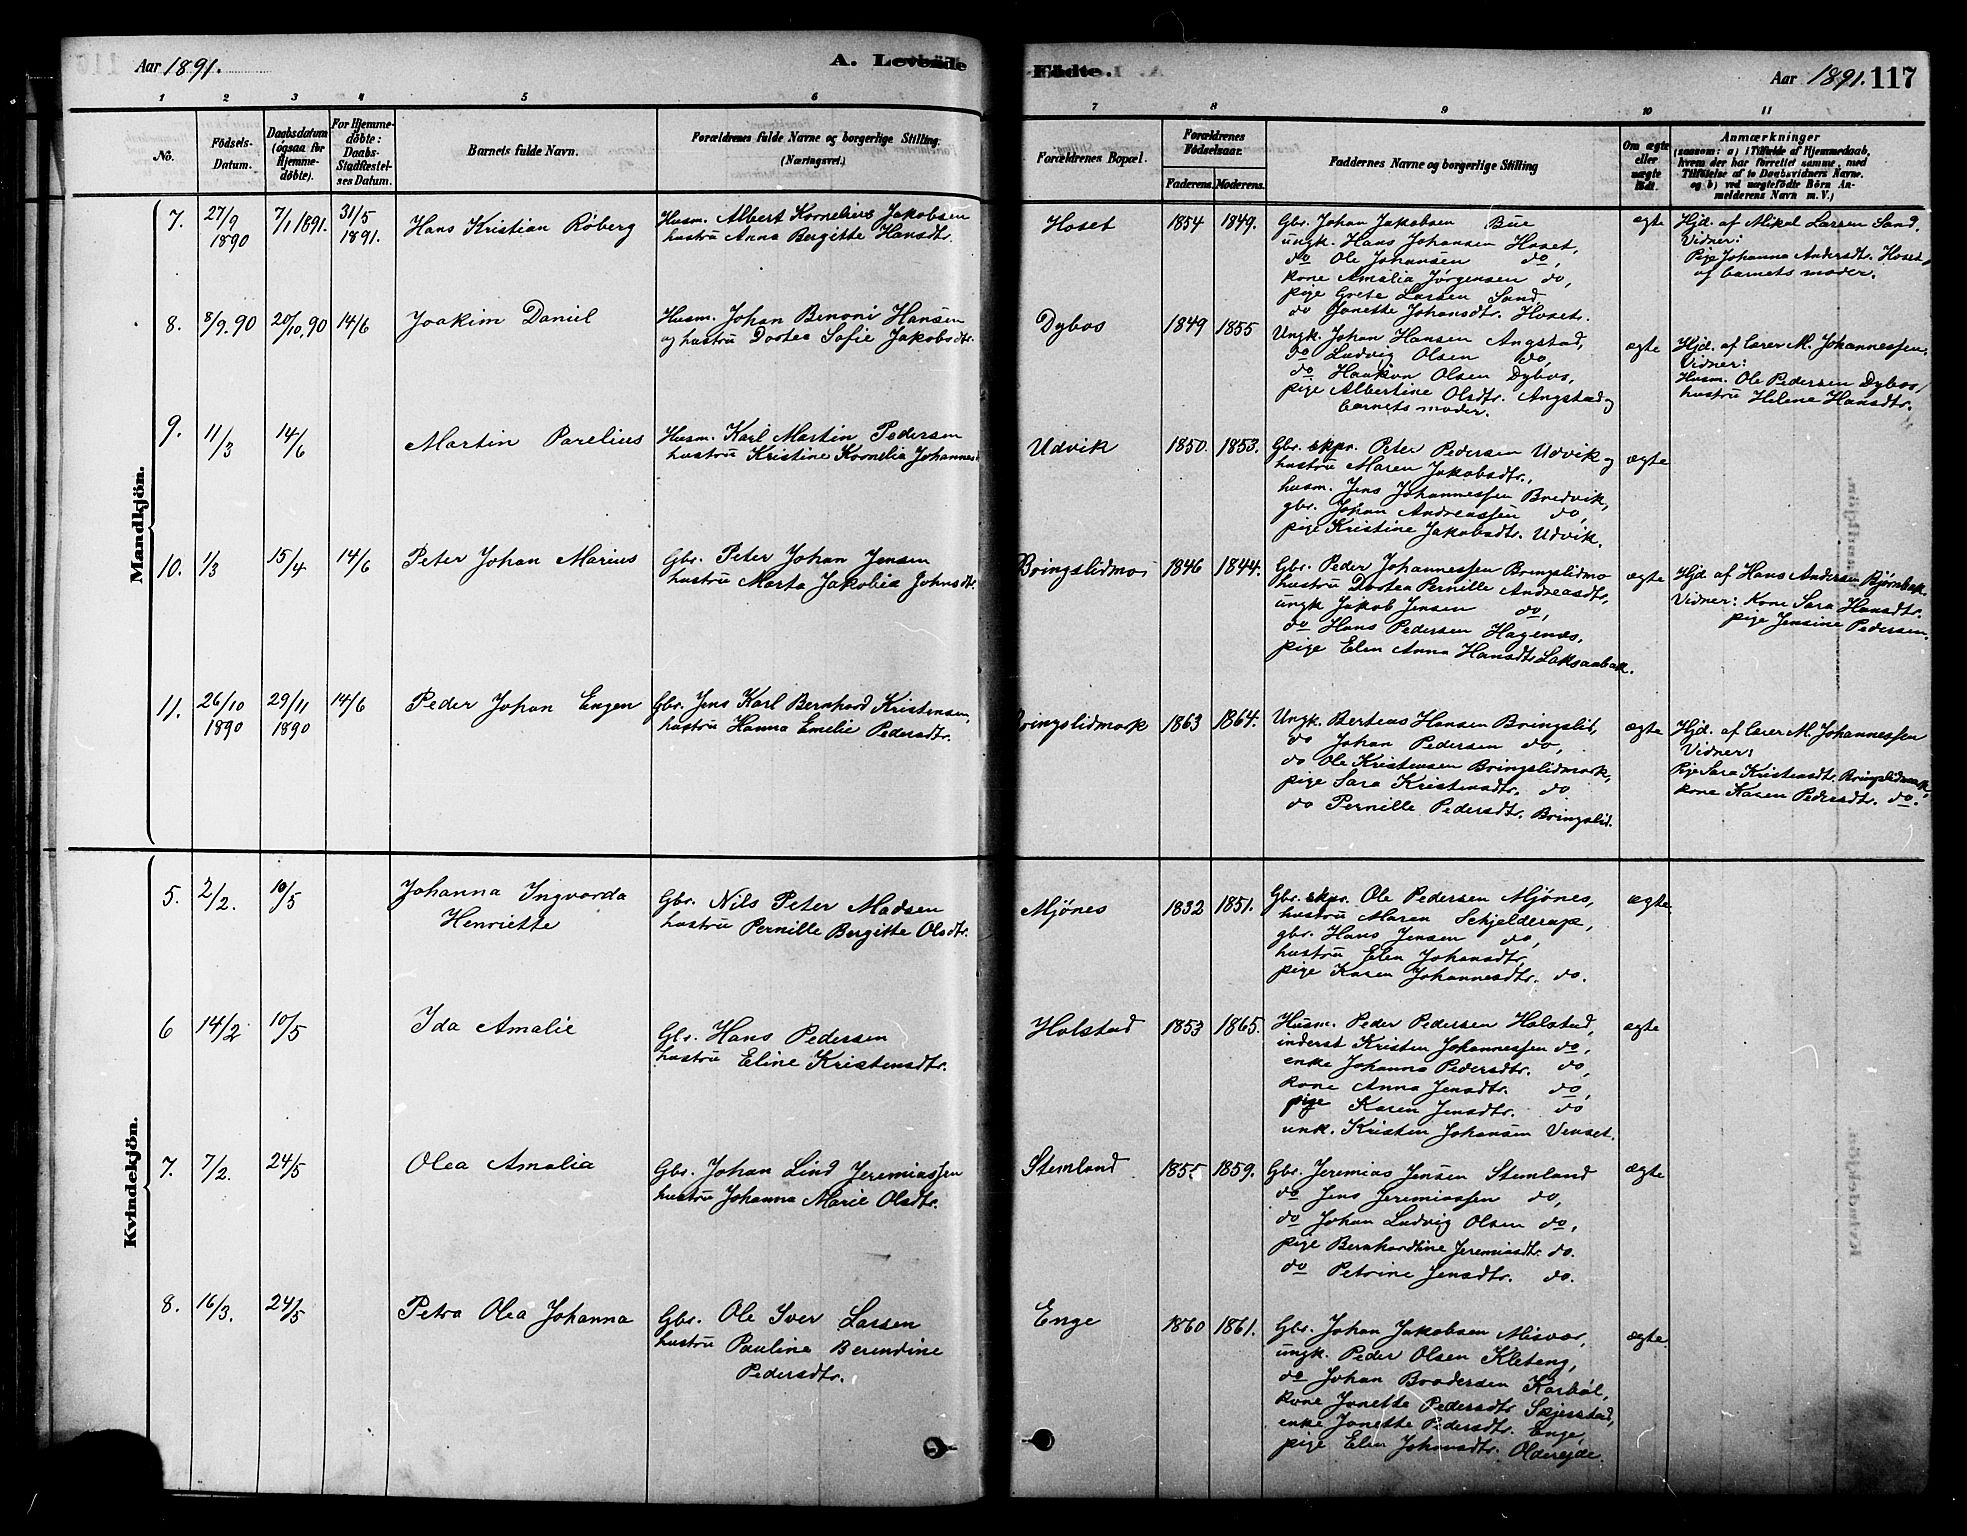 Aar 1891.
A. Levende
Födte.
Aar 1891. 117
1 2 3 4 5 6 7 8 9 10 11
No.
Födsels-
Datum.
Daabsdatum
(ogsaa for
Hjemme-
döbte).
For Hjemme-
döbte:
Daabs-
Stadfæstel-
ses Datum.
Barnets fulde Navn.
Forældrenes fulde Navne og borgerlige Stilling
(Næringsvei.)
Forældrenes Bopæl.
Forældrenes
Födselsaar.
Faderens. Moderens.
Faddernes Navne og borgerlige Stilling
Om ægte
eller
uægte
födt.
Anmærkninger
(saasom: a) i Tilfælde af Hjemmedaab,
hvem der har forrettet samme, med
Tilföielse af to Daabsvidners Navne.
og b) ved uægtefödte Börn An-
melderens Navn m. V.)
Mandkjön.
7. 27/9 1890 7/1 1891. 31/5 1891. Hans Kristian Röberg
Husm. Albert Kornelius Jakobsen
hustru Anna Bergitte Hansdtr.
Hoset 1854 1849.
Gbr. Johan Jakobsen Bue
ungk. Hans Johansen Hoset,
do Ole Johansen do,
kone Amalia Jörgensen do,
pige Grete Larsen Sand,
do Janette Johansdtr. Hoset.
ægte
Hjd. af Mikal Larsen Sand,
Vidner:
Pige Johanna Andersdtr. Hoset,
og barnets moder.
8. 8/9. 90 20/10. 90 14/6 Joakim Daniel
Husm. Johan Benoni Hansen
og hustru Dortea Sofie Jakobsdtr.
Dybos 1849 1855
Ungk. Johan Hansen Angstad,
do Ludvig Olsen do,
do Haakon Olsen Dybos,
pige Albertine Olsdtr. Angstad og
barnets moder.
ægte
Hjd. af lærer M. Johannessen.
Vidner:
Husm. Ole Pedersen Dybos,
hustru Helene Hansdtr.
9. 11/3 14/6 Martin Parelius
Husm. Karl Martin Pedersen
hustru Kristine Kornelia Johannesd
Udvik 1850 1853.
Gbr. skpr. Peter Pedersen Udvik og
hustru Maren Jakobsdtr.,
husm. Jens Johannessen Bredvik,
gbr. Johan Andreassen do,
pige Kristine Jakobsdtr. Udvik.
ægte
10. 1/3 15/4 14/6 Peter Johan Marius
Gbr. Peter Johan Jensen
hustru Marta Jakobia Johnsdtr.
Bringslidmo 1846 1844.
Gbr. Peder Johannessen Bringslidmo
hustru Dortea Pernille Andreasdtr,
ungk Jakob Jensen do,
do Hans Pedersen Hagenæs,
pige Elen Anna Hansdtr. Laksaabak.
ægte
Hjd. af Hans Andersen Bjørnbak.
Vidner: Kone Sara Hansdtr.
pige Jensine Pedersen.
11. 26/10 1890 29/11 1890 14/6 Peder Johan Engen
Gbr. Jens Karl Bernhard Kristensen,
hustru Hanna Emelie Pedersdtr.
Bringslidmark 1863 1864.
Ungk. Berteus Hansen Bringslid,
do Johan Pedersen do,
do Ole Kristensen Bringslidmark,
pige Sara Kristensdtr. do
do Pernille Pedersdtr. Bringslid.
ægte
Hjd. af lærer M. Johannessen
Vidner:
Pige Sara Kristensdtr. Bringslidmark,
kone Karen Pedersdtr. do.
Kvindekjön.
5. 2/2. 10/5 Johanna Ingvarda
Henriette
Gbr. Nils Peter Madsen
hustru Pernille Bergitte Olsdtr.
Mjönes 1832 1851.
Gbr. skpr. Ole Pedersen Mjönes,
hustru Maren Schjelderup,
gbr. Hans Jensen do,
hustru Elen Johansdtr,
pige Karen Johannesdtr. do.
ægte.
6 14/2 10/5 Ida Amalie
Gbr. Hans Pedersen
hustru Eline Kristensdtr.
Halstad 1853 1865.
Husm. Peder Pedersen Halstad,
inderst Kristen Johannessen do,
enke Johanna Pedersdtr. do,
kone Anna Jensdtr. do,
pige Karen Jensdtr. do
unk. Kristen Johansen Venset.
ægte
7. 7/2. 24/5 Olea Amalia
Gbr. Johan Lind Jeremiassen
hustru Johanna Marie Olsdtr.
Stemland 1855 1859.
Gbr. Jeremias Jensen Stemland
do Jens Jeremiassen do,
do Johan Ludvig Olsen do,
pige Bernhardtine Jeremiasdtr. do.
do Petrine Jensdtr. do.
ægte
8. 16/3. 24/5 Petra Olea Johanna
Gbr. Ole Iver Larsen
hustru Pauline Berendine
Pedersdtr.
Enge 1860 1861.
Gbr. Johan Jakobsen Misvær,
ungk. Peder Olsen Kleteng,
do Johan Baadersen Karböl,
kone Janette Pedersdtr. Skjerstad,
enke Janette Pedersdtr. Enge,
pige Elen Johansdtr. Oldereide.
ægte.